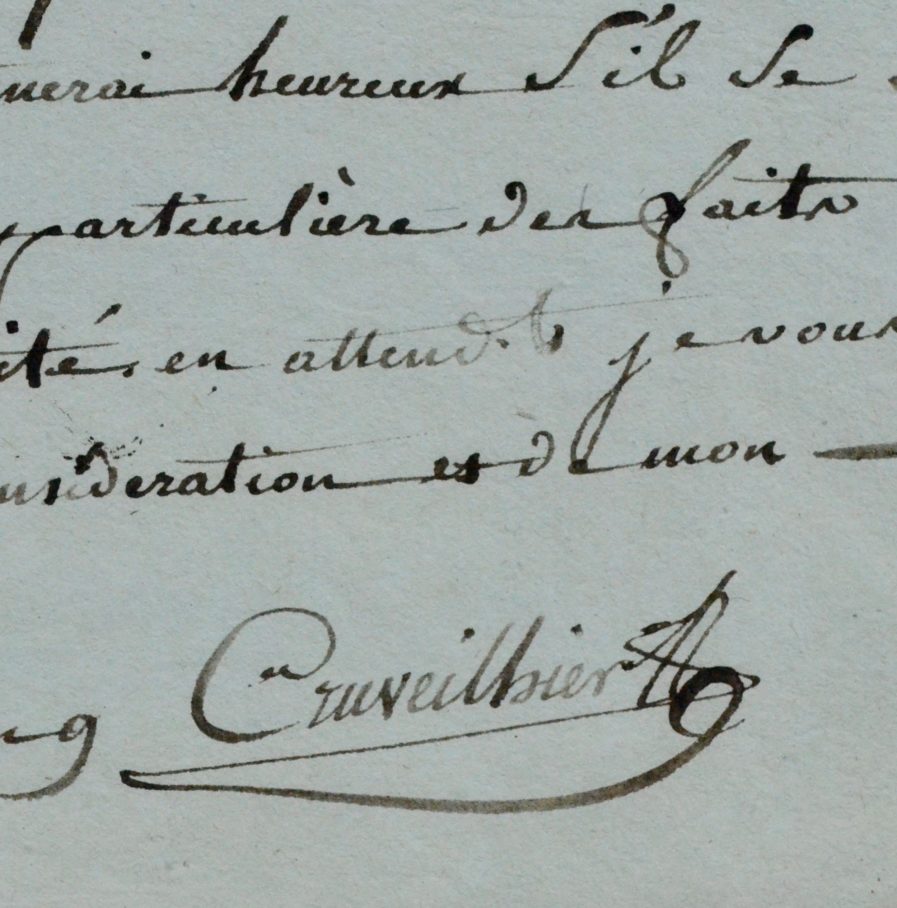 nerai heureux s'il se
particulière des faits
ité. en attend.t je vous
nsideration et de mon
g Cruveilhier